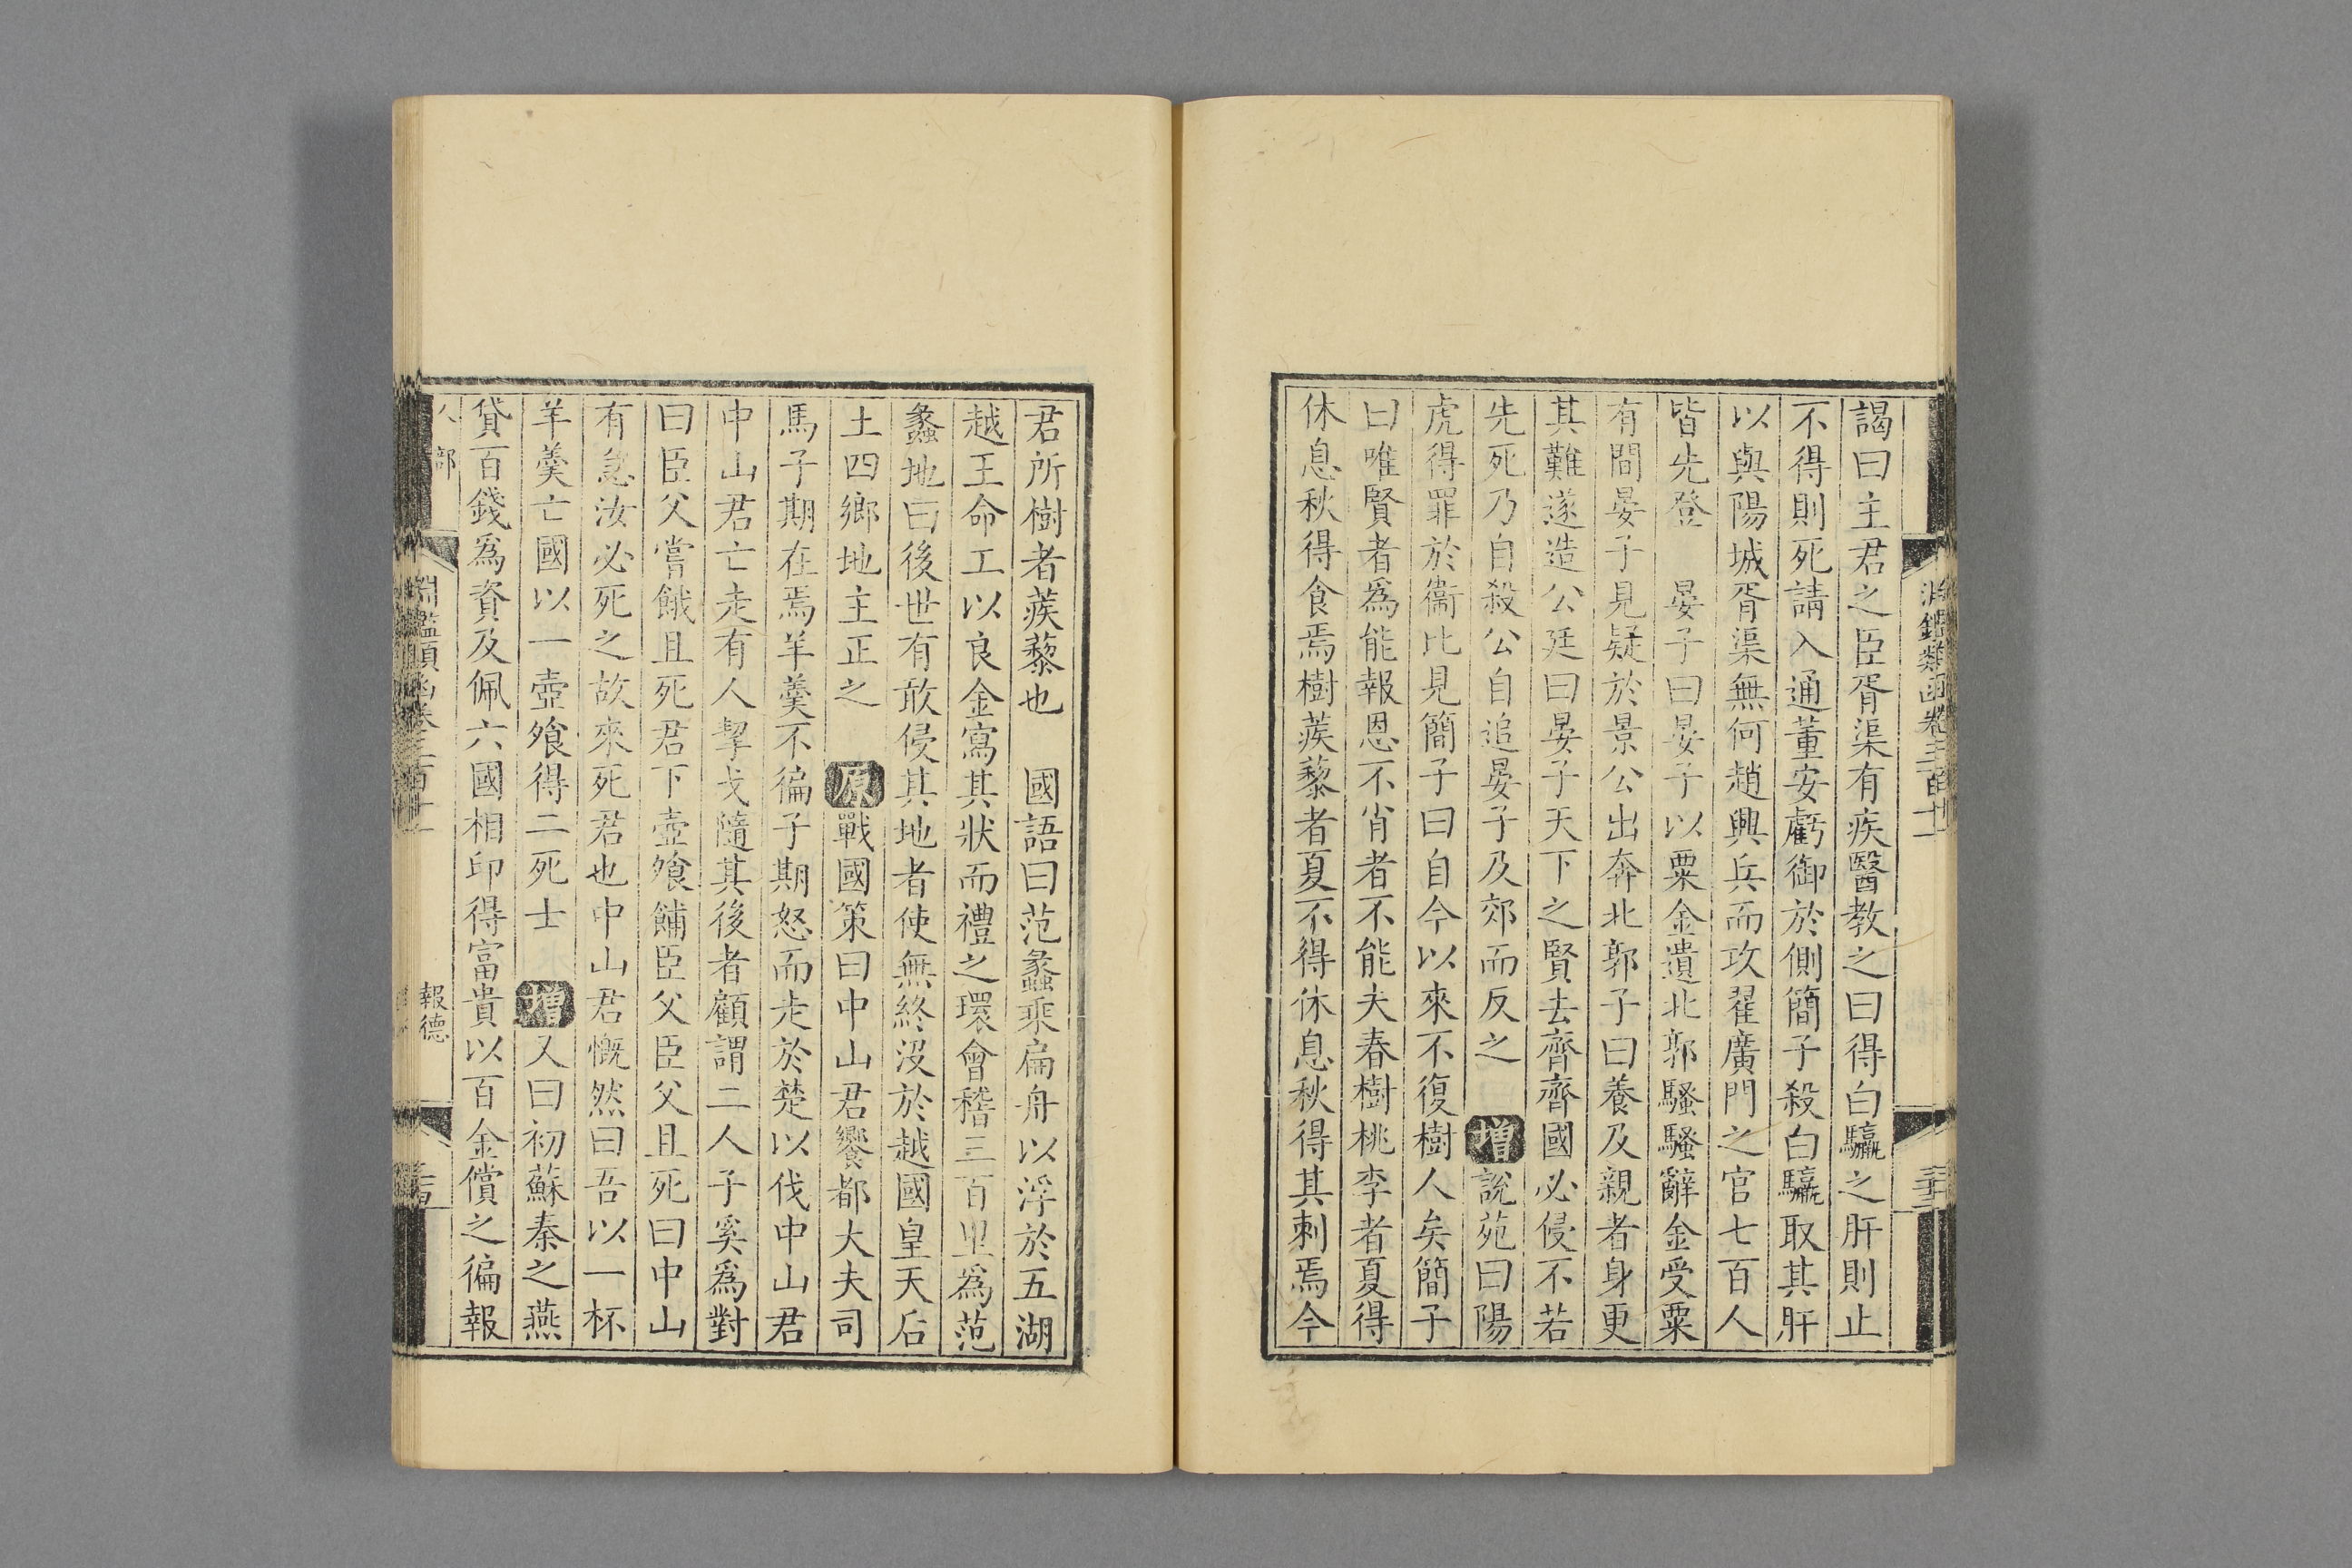 謁曰主君之臣胥渠有疾醫教之曰得白驘之肝則止
不得則死請入通董安虧御於側簡子殺白驘取其肝
以與陽城胥渠無何趙興兵而攻翟廣門之官七百人
皆先登　晏子曰晏子以粟金遺北郭騷騷辭金受粟
有間晏子見疑於景公出奔北郭子曰養及親者身更
其難遂造公廷曰晏子天下之賢去齊齊國必侵不若
先死乃自殺公自追晏子及郊而反之　增說苑曰陽
虎得罪於衞比見簡子曰自今以來不復樹人矣簡子
曰唯賢者爲能報恩不肖者不能夫春樹桃李者夏得
休息秋得食焉樹蒺藜者夏不得休息秋得其刺焉今
君所樹者蒺藜也　國語曰范蠡乘扁舟以浮於五湖
越王命工以良金寫其狀而禮之環會稽三百里爲范
蠡地曰後世有敢侵其地者使無終沒於越國皇天后
土四鄉地主正之　原戰國策曰中山君饗都大夫司
馬子期在焉羊羹不徧子期怒而走於楚以伐中山君
中山君亡走有人挈戈隨其後者顧謂二人子奚爲對
曰臣父嘗餓且死君下壺飧餔臣父臣父且死曰中山
有急汝必死之故來死君也中山君慨然曰吾以一杯
羊羹亡國以一壺飧得二死士　增又曰初蘇秦之燕
貸百錢爲資及佩六國相印得富貴以百金償之徧報
報德